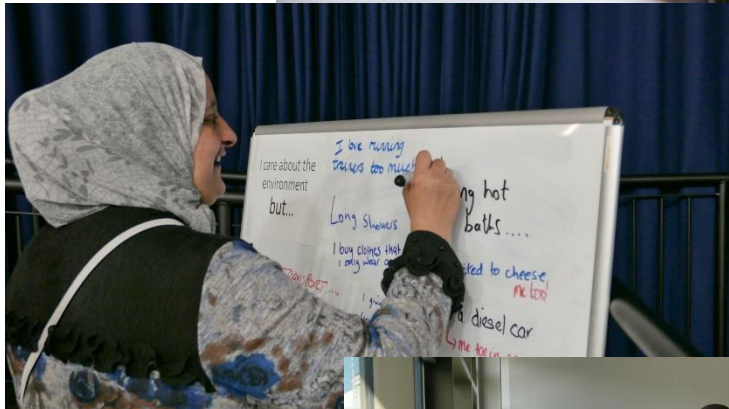 I care about the
environment
but...
I love running
trainers too much
Long showers
I buy clothes that
I only wear
TRANSPORT....
hot
baths....
to cheese
me too!
a diesel car
me too